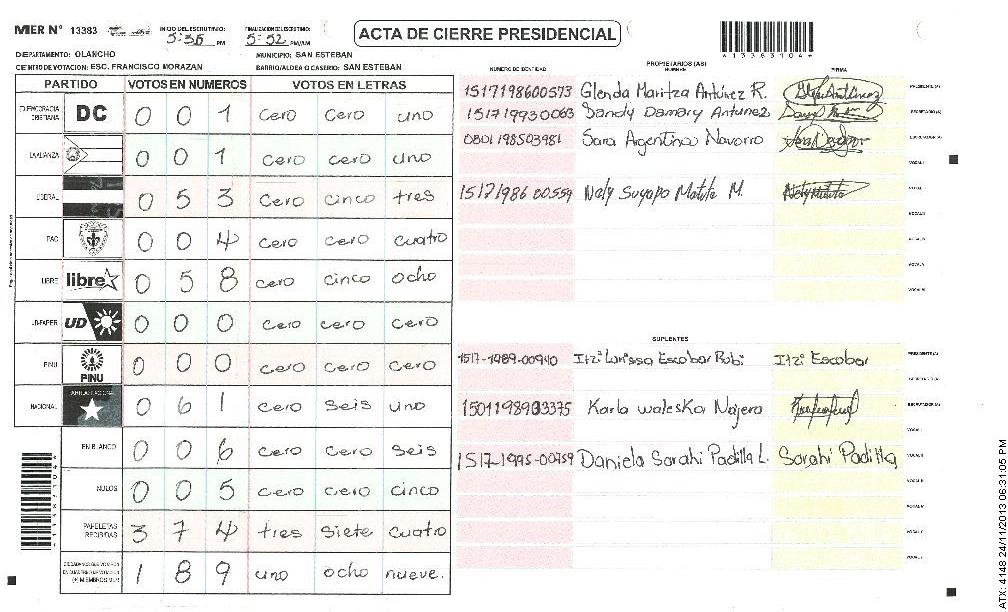 MER N° 13383
INICIO DEL ESCRUTINIO: 5:35 PM
FINALIZACION ESCRUTINIO: 5:52 PM/AM
ACTA DE CIERRE PRESIDENCIAL
*13383104*
DEPARTAMENTO: OLANCHO
MUNICIPIO: SAN ESTEBAN
CENTRO DE VOTACION: ESC. FRANCISCO MORAZAN
BARRIO/ALDEA O CASERIO: SAN ESTEBAN
PARTIDO VOTOS EN NUMEROS VOTOS EN LETRAS
DEMOCRACIA CRISTIANA DC 0 0 1 cero cero uno
LA ALIANZA 0 0 1 cero cero uno
LIBERAL 0 5 3 cero cinco tres
PAC 0 0 4 cero cero cuatro
LIBRE libre 0 5 8 cero cinco ocho
UD-FAPER UD 0 0 0 cero cero cero
PINU PINU 0 0 0 cero cero cero
NACIONAL 0 6 1 cero seis uno
EN BLANCO 0 0 6 cero cero seis
NULOS 0 0 5 cero cero cinco
PAPELETAS RECIBIDAS 3 7 4 tres siete cuatro
CIUDADANOS QUE VOTARON EN CUADERNO DE VOTACION (+) MIEMBROS MER 1 8 9 uno ocho nueve.
PROPIETARIOS (AS)
NUMERO DE IDENTIDAD NOMBRE FIRMA
1517198600573 Glenda Maritza Antúnez R. PRESIDENTE (A)
1517199300063 Sandy Damary Antunez SECRETARIO (A)
0801198503981 Sara Argentina Navarro ESCRUTADOR (A)
VOCAL I
1517198600559 Nely Suyapa Matute M. Nely Matute VOCAL II
VOCAL III
VOCAL IV
VOCAL V
VOCAL VI
SUPLENTES
1517-1989-00940 Itzi Larissa Escobar Rubi Itzi Escobar PRESIDENTE (A)
SECRETARIO (A)
1501198933375 Karla waleska Najera ESCRUTADOR (A)
VOCAL I
1517-1995-00759 Daniela Sarahi Padilla L. Sarahi Padilla VOCAL II
VOCAL III
VOCAL IV
VOCAL V
VOCAL VI
ATX: 4148 24/11/2013 06:31:05 PM